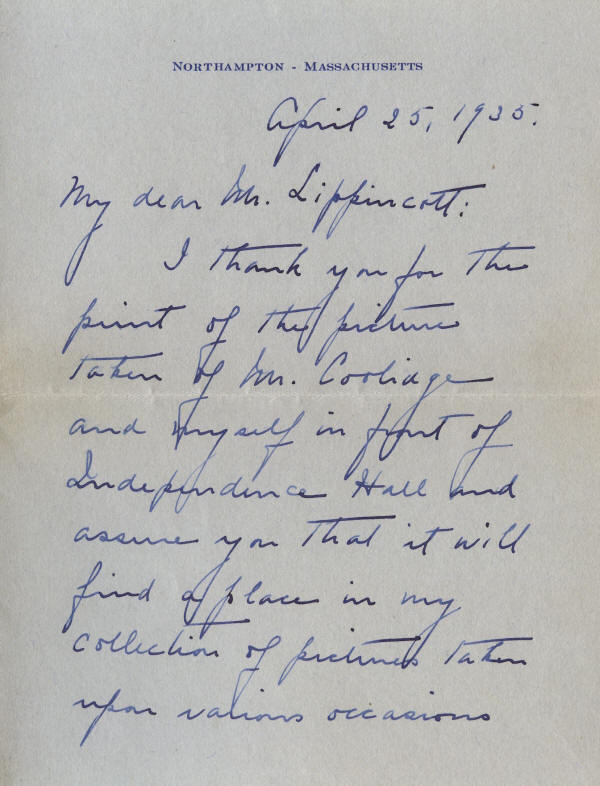 NORTHAMPTON - MASSACHUSETTS
April 25, 1935.
My dear Mr. Lippincott:
I thank you for the
print of the picture
taken of Mr. Coolidge
and myself in front of
Independence Hall and
assure you that it will
find a place in my
collection of pictures taken
upon various occasions